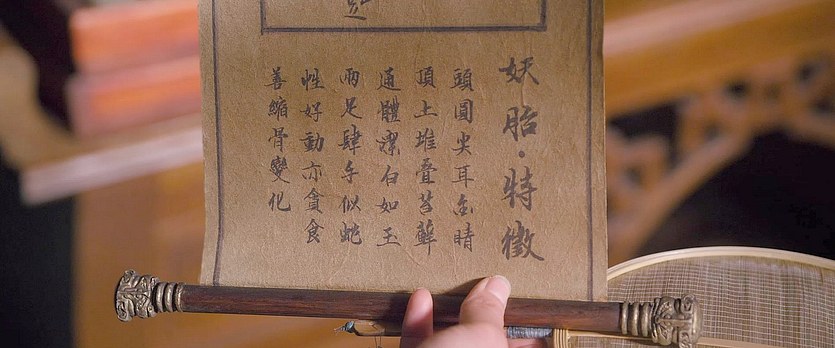 妖胎·特徵
頭圓尖耳金睛
頂土堆叠苔蘚
通體潔白如玉
兩足肆手似蛇
性好動亦貪食
善縮骨變化